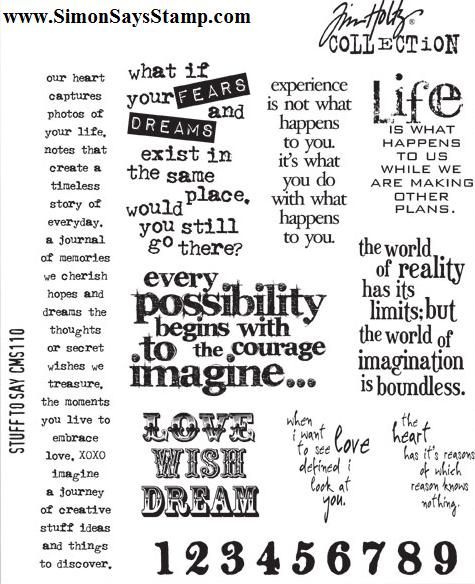 www.SimonSaysStamp.com
Tim Holtz
COLLECTION
our heart
captures
photos of
your life.
notes that
create a
timeless
story of
everyday.
a journal
of memories
we cherish
hopes and
dreams the
thoughts
or secret
wishes we
treasure.
the moments
you live to
embrace
love. XOXO
imagine
a journey
of creative
stuff ideas
and things
to discover.
STUFF TO SAY CMS110
what if
your FEARS
and
DREAMS
exist in
the same
place.
would
you still
go there?
experience
is not what
happens
to you.
it's what
you do
with what
happens
to you.
Life
IS WHAT
HAPPENS
TO US
WHILE WE
ARE MAKING
OTHER
PLANS.
every
possibility
begins with
.to the courage
imagine...
the world
of reality
has its
limits; but
the world of
imagination
is boundless.
LOVE
WISH
DREAM
when
i want
to see love
defined i
look at
you.
the
heart
has it's reasons
of which
reason knows
nothing.
1 2 3 4 5 6 7 8 9